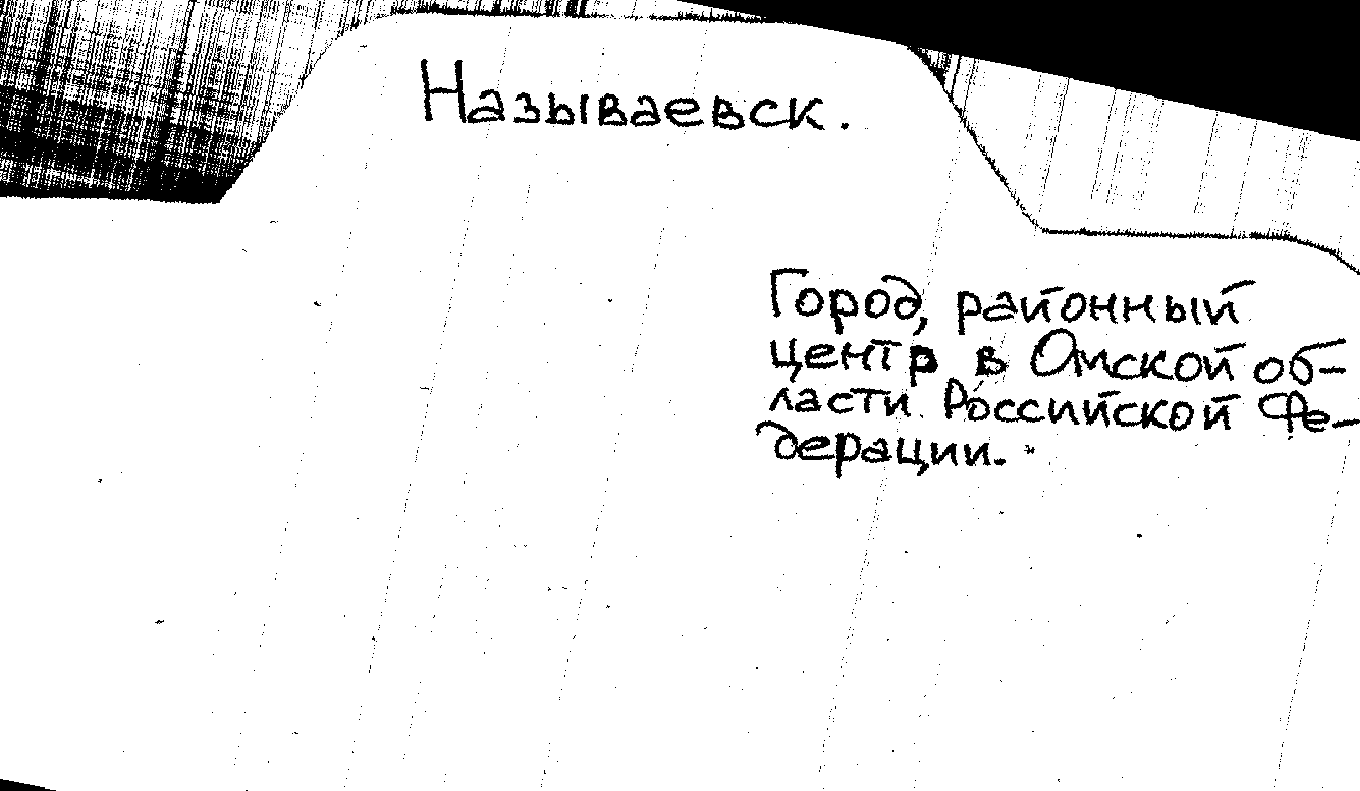 Называевск.
Город, районный
центр в Омской об-
ласти Российской Фе-
дерации.